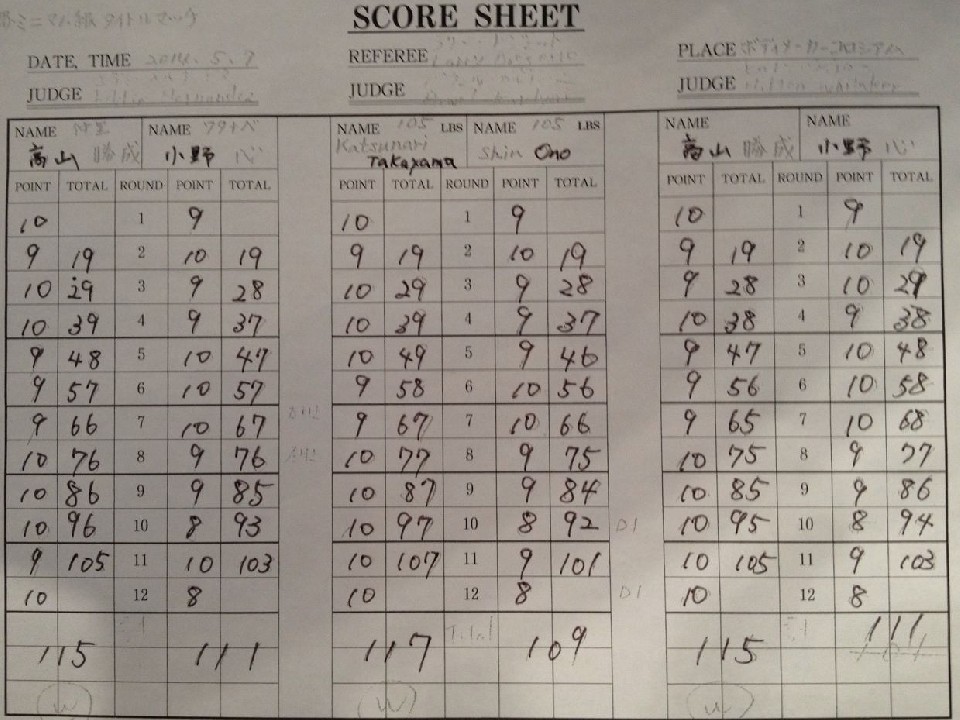 SCORE SHEET
DATE, TIME 2014. 5. 7 REFEREE PLACE ボディメーカーコロシアム
JUDGE JUDGE JUDGE
NAME NAME NAME 105 LBS NAME 105 LBS NAME NAME
高山 勝成 小野 心 Katsunari Takayama Shin Ono 高山 勝成 小野 心
POINT TOTAL ROUND POINT TOTAL POINT TOTAL ROUND POINT TOTAL POINT TOTAL ROUND POINT TOTAL
10 1 9 10 1 9 10 1 9
9 19 2 10 19 9 19 2 10 19 9 19 2 10 19
10 29 3 9 28 10 29 3 9 28 9 28 3 10 29
10 39 4 9 37 10 39 4 9 37 10 38 4 9 38
9 48 5 10 47 10 49 5 9 46 9 47 5 10 48
9 57 6 10 57 9 58 6 10 56 9 56 6 10 58
9 66 7 10 67 9 67 7 10 66 9 65 7 10 68
10 76 8 9 76 10 77 8 9 75 10 75 8 9 77
10 86 9 9 85 10 87 9 9 84 10 85 9 9 86
10 96 10 8 93 10 97 10 8 92 D1 10 95 10 8 94
9 105 11 10 103 10 107 11 9 101 10 105 11 9 103
10 12 8 10 12 8 D1 10 12 8
115 111 117 Total 109 115 111
W W W